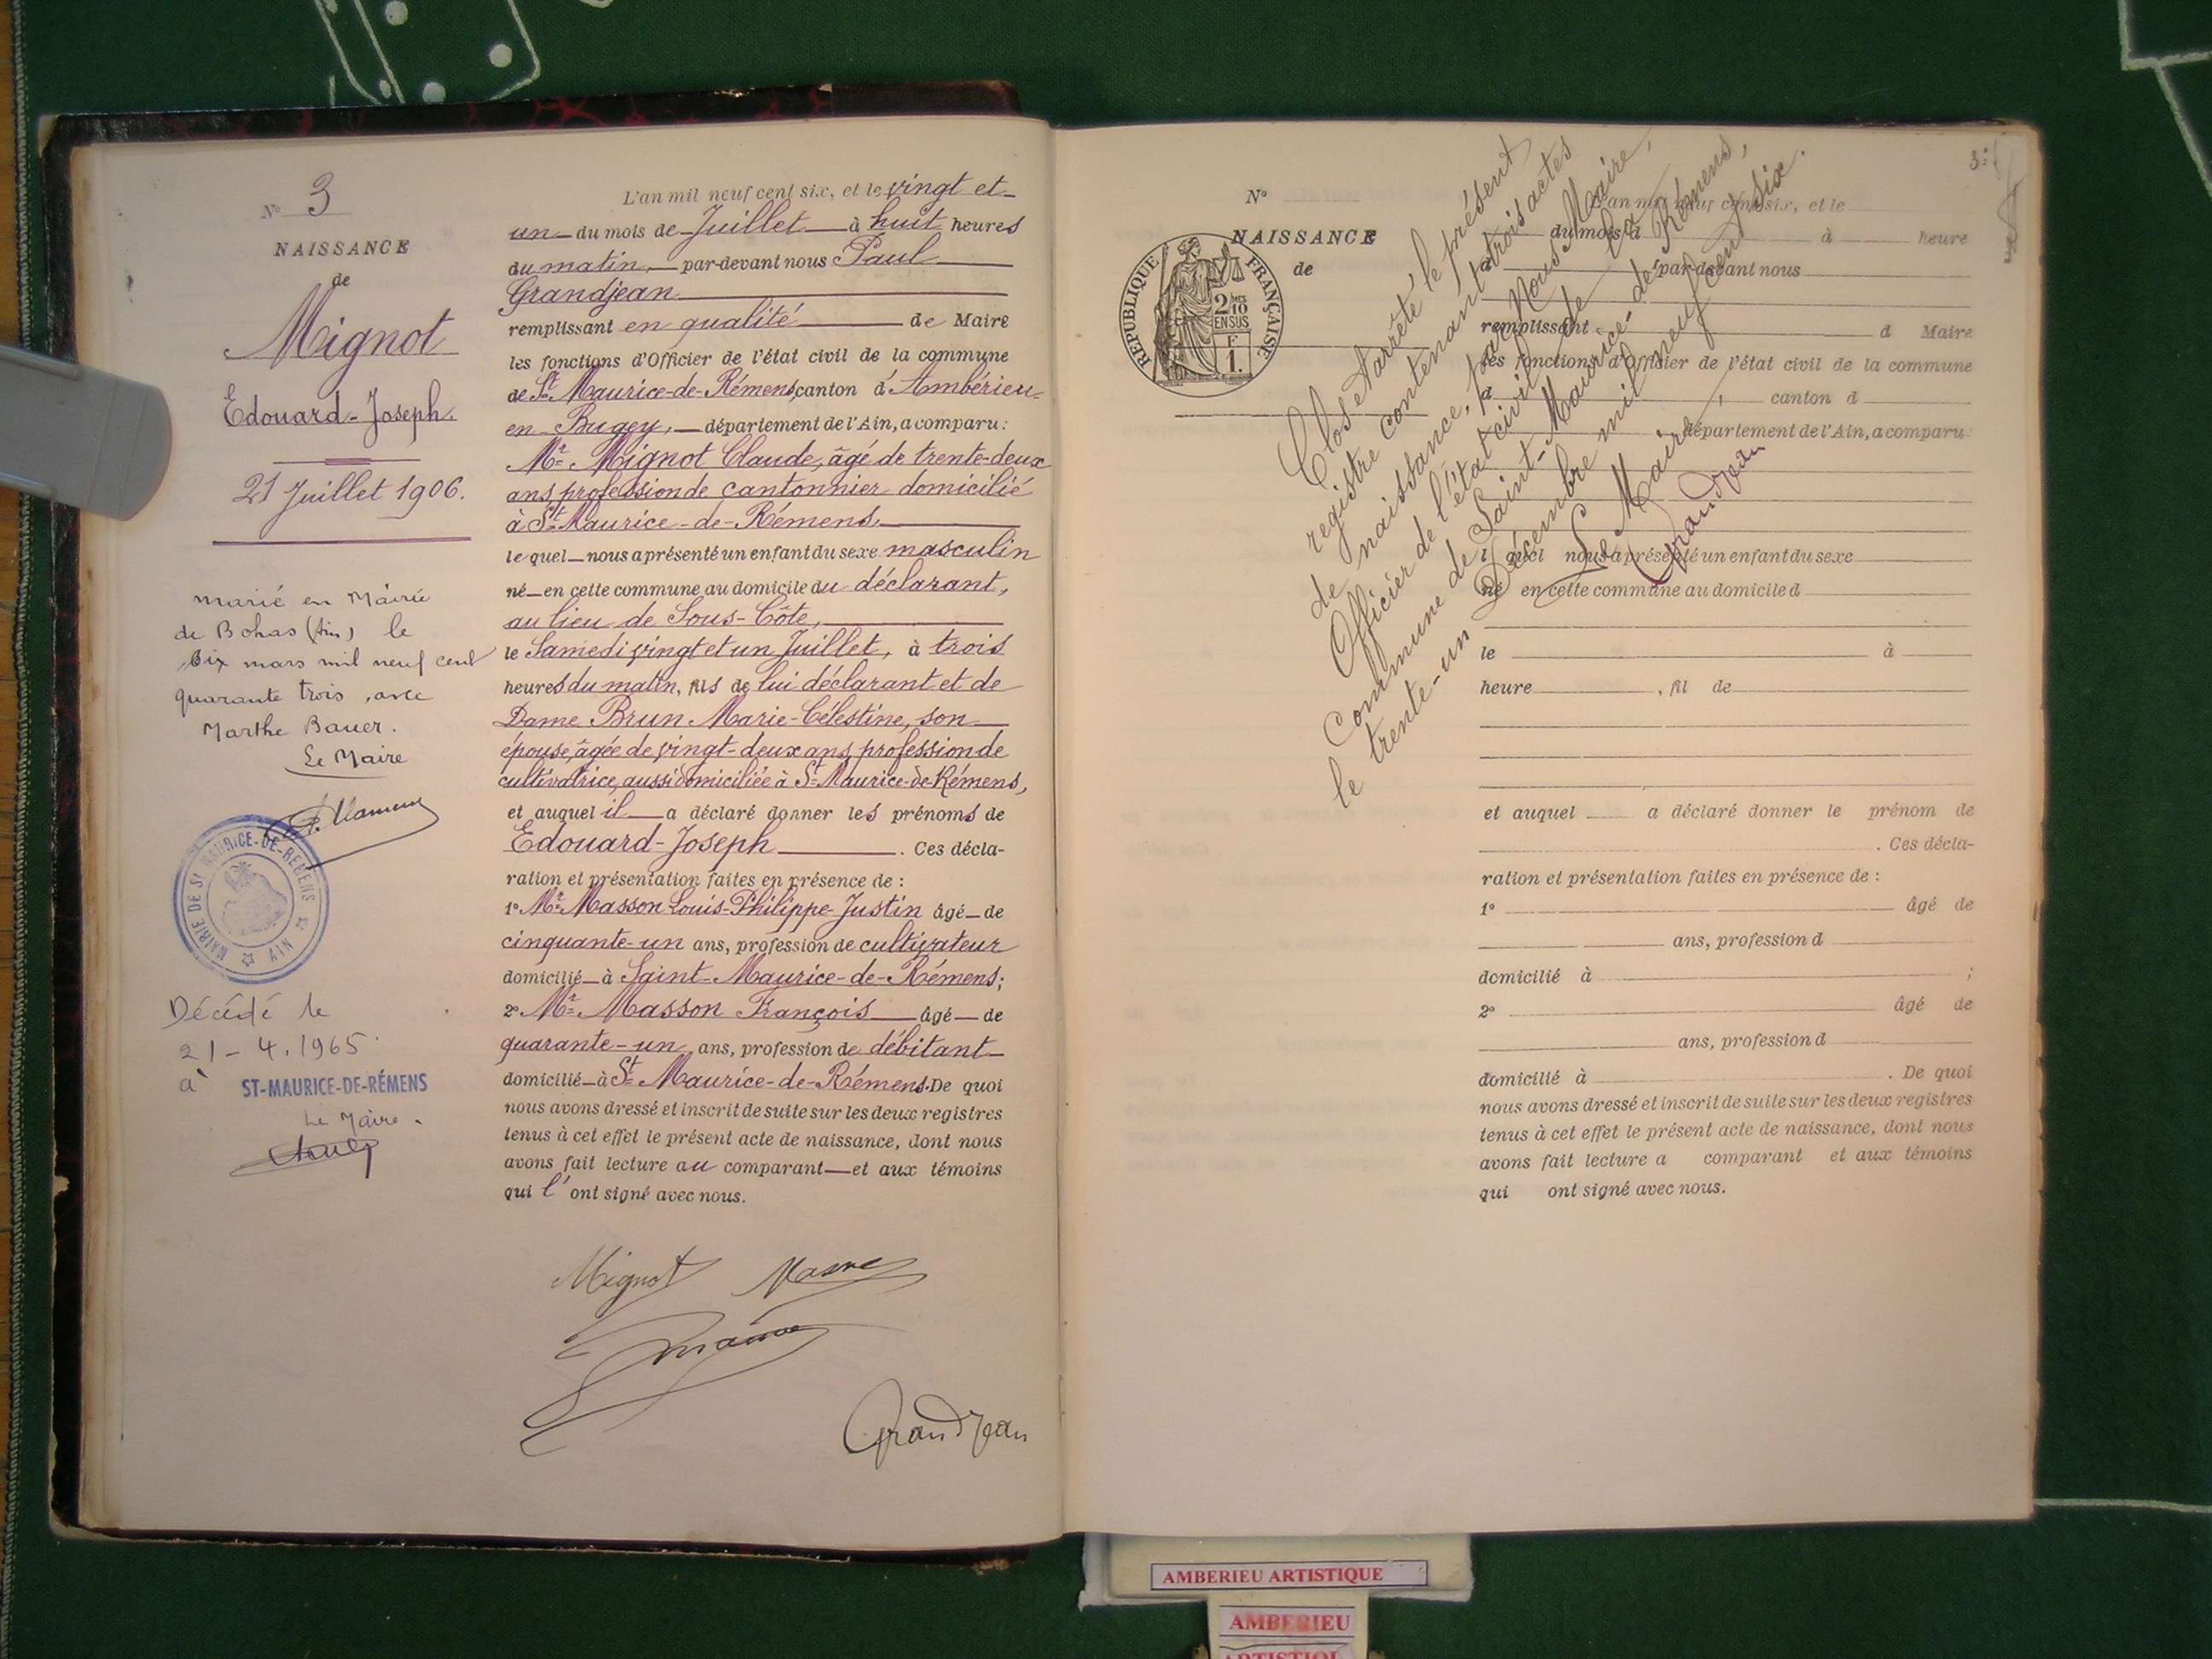 N° 3
NAISSANCE
de
Mignot
Edouard-Joseph.
21 Juillet 1906.
marié en Mairie
de Bohas (Ain) le
six mars mil neuf cent
quarante trois, avec
Marthe Bauer.
Le Maire
MAIRIE DE St MAURICE-DE-REMENS
AIN
Décédé le
21-4.1965
à ST-MAURICE-DE-RÉMENS
Le Maire.
L'an mil neuf cent six, et le vingt et
un du mois de Juillet à huit heures
du matin, par-devant nous Paul
Grandjean
remplissant en qualité de Maire
les fonctions d'Officier de l'état civil de la commune
de St Maurice-de-Rémens, canton d'Ambérieu-
en Bugey, département de l'Ain, a comparu:
Mr Mignot Claude, âgé de trente-deux
ans, profession de cantonnier domicilié
à St Maurice-de-Rémens,
lequel nous a présenté un enfant du sexe masculin
né en cette commune au domicile du déclarant,
au lieu de Sous-Côte,
le Samedi vingt et un Juillet, à trois
heures du matin, fils de lui déclarant et de
Dame Brun Marie-Célestine, son
épouse, âgée de vingt-deux ans, profession de
cultivatrice, aussi domiciliée à St Maurice-de-Rémens,
et auquel il a déclaré donner les prénoms de
Edouard-Joseph. Ces décla-
ration et présentation faites en présence de :
1° Mr Masson Louis-Philippe-Justin âgé de
cinquante-un ans, profession de cultivateur
domicilié à Saint-Maurice-de-Rémens;
2° Mr Masson François âgé de
quarante-un ans, profession de débitant
domicilié à St Maurice-de-Rémens. De quoi
nous avons dressé et inscrit de suite sur les deux registres
tenus à cet effet le présent acte de naissance, dont nous
avons fait lecture au comparant et aux témoins
qui l'ont signé avec nous.
Mignot
Grandjean
N°
NAISSANCE
de
RÉPUBLIQUE FRANÇAISE
2/10
EN SUS
F
1.
Clos et arrêté le présent
registre contenant trois actes
de naissance, par Nous Maire,
Officier de l'état civil de la
Commune de Saint-Maurice-de-Rémens,
le trente-un Décembre mil neuf cent six.
Le Maire,
Grandjean
L'an mil neuf cent six, et le
du mois d à heure
par-devant nous
remplissant d Maire
les fonctions d'Officier de l'état civil de la commune
d , canton d
département de l'Ain, a comparu:
l quel nous a présenté un enfant du sexe
né en cette commune au domicile d
le à
heure , fil de
et auquel a déclaré donner le prénom de
. Ces décla-
ration et présentation faites en présence de :
1° âgé de
ans, profession d
domicilié à ;
2° âgé de
ans, profession d
domicilié à . De quoi
nous avons dressé et inscrit de suite sur les deux registres
tenus à cet effet le présent acte de naissance, dont nous
avons fait lecture a comparant et aux témoins
qui ont signé avec nous.
AMBERIEU ARTISTIQUE
AMBERIEU
ARTISTIQUE